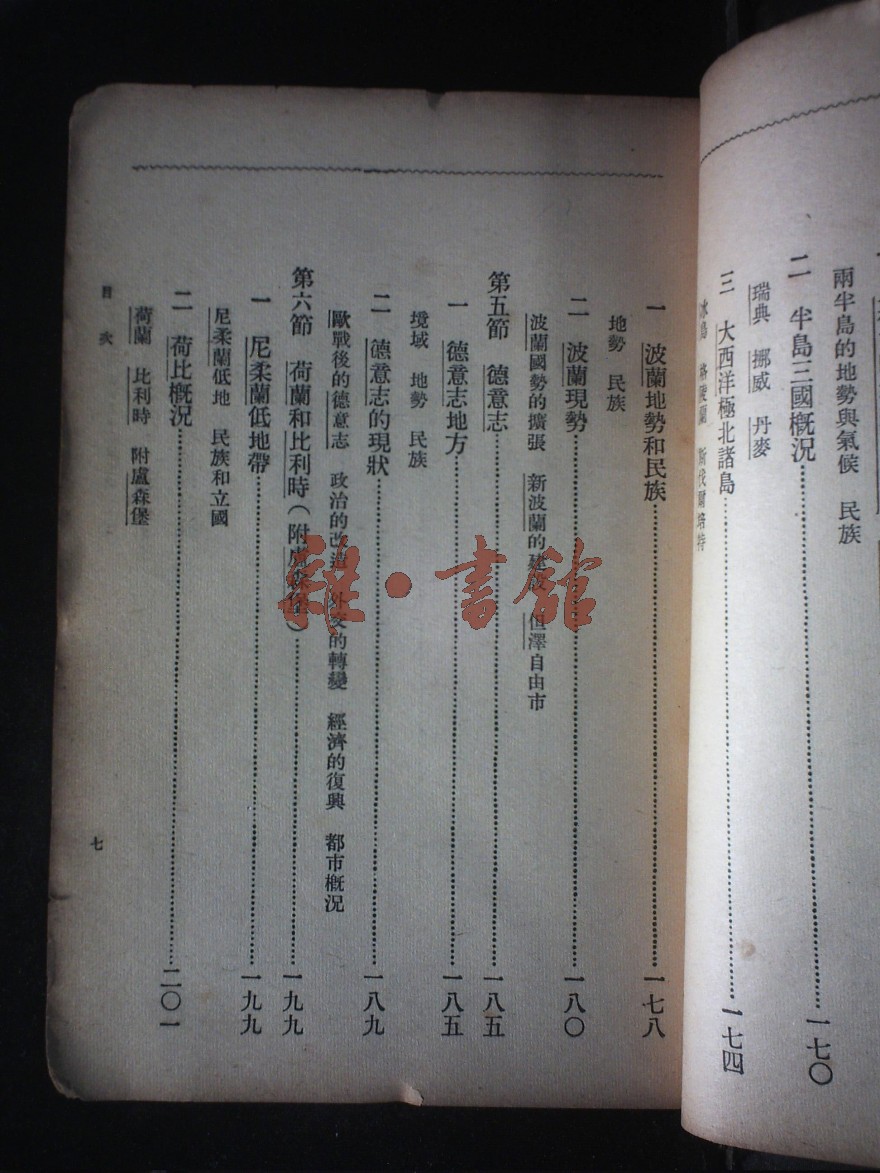 兩半島的地勢與氣候 民族
二 半島三國概況 一七〇
瑞典 挪威 丹麥
三 大西洋極北諸島 一七四
冰島 格陵蘭 斯伐爾培特
一 波蘭地勢和民族 一七八
地勢 民族
二 波蘭現勢 一八〇
波蘭國勢的擴張 新波蘭的建設 但澤自由市
第五節 德意志 一八五
一 德意志地方 一八五
境域 地勢 民族
二 德意志的現狀 一八九
歐戰後的德意志 政治的改造 外交的轉變 經濟的復興 都市概況
第六節 荷蘭和比利時(附盧森堡) 一九九
一 尼柔蘭低地帶 一九九
尼柔蘭低地 民族和立國
二 荷比概況 二〇一
荷蘭 比利時 附盧森堡
目次
七
雜·書館